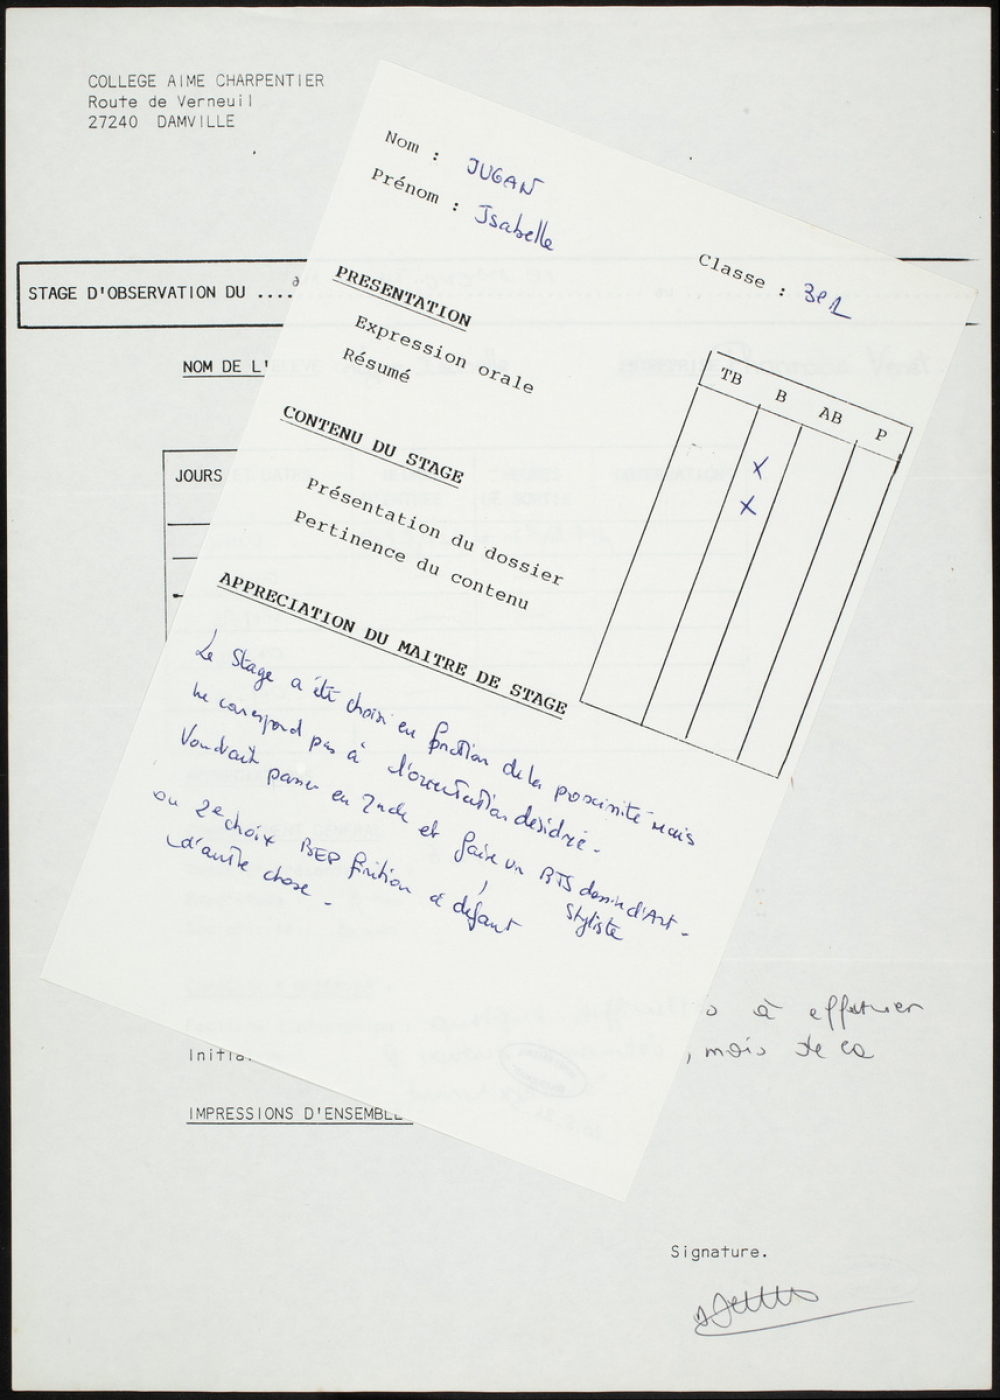 COLLEGE AIME CHARPENTIER
Route de Verneuil
27240 DAMVILLE
STAGE D'OBSERVATION DU ....
NOM DE L'
JOURS
Nom : JUGAN
Prénom : Isabelle
Classe :
PRESENTATION
Expression orale
Résumé
CONTENU DU STAGE
Présentation du dossier
Pertinence du contenu
TB B AB P
X
X
APPRECIATION DU MAITRE DE STAGE
Le Stage a été choisi en fonction de la proximité mais
ne correspond pas à l'orientation désirée.
Voudrait passer en 2nde et faire un BTS dessin d'Art -
Styliste
ou 2e choix BEP finition à défaut
d'autre chose.
à effectuer
, mais de ce
Initia
IMPRESSIONS D'ENSEMBLE
Signature.